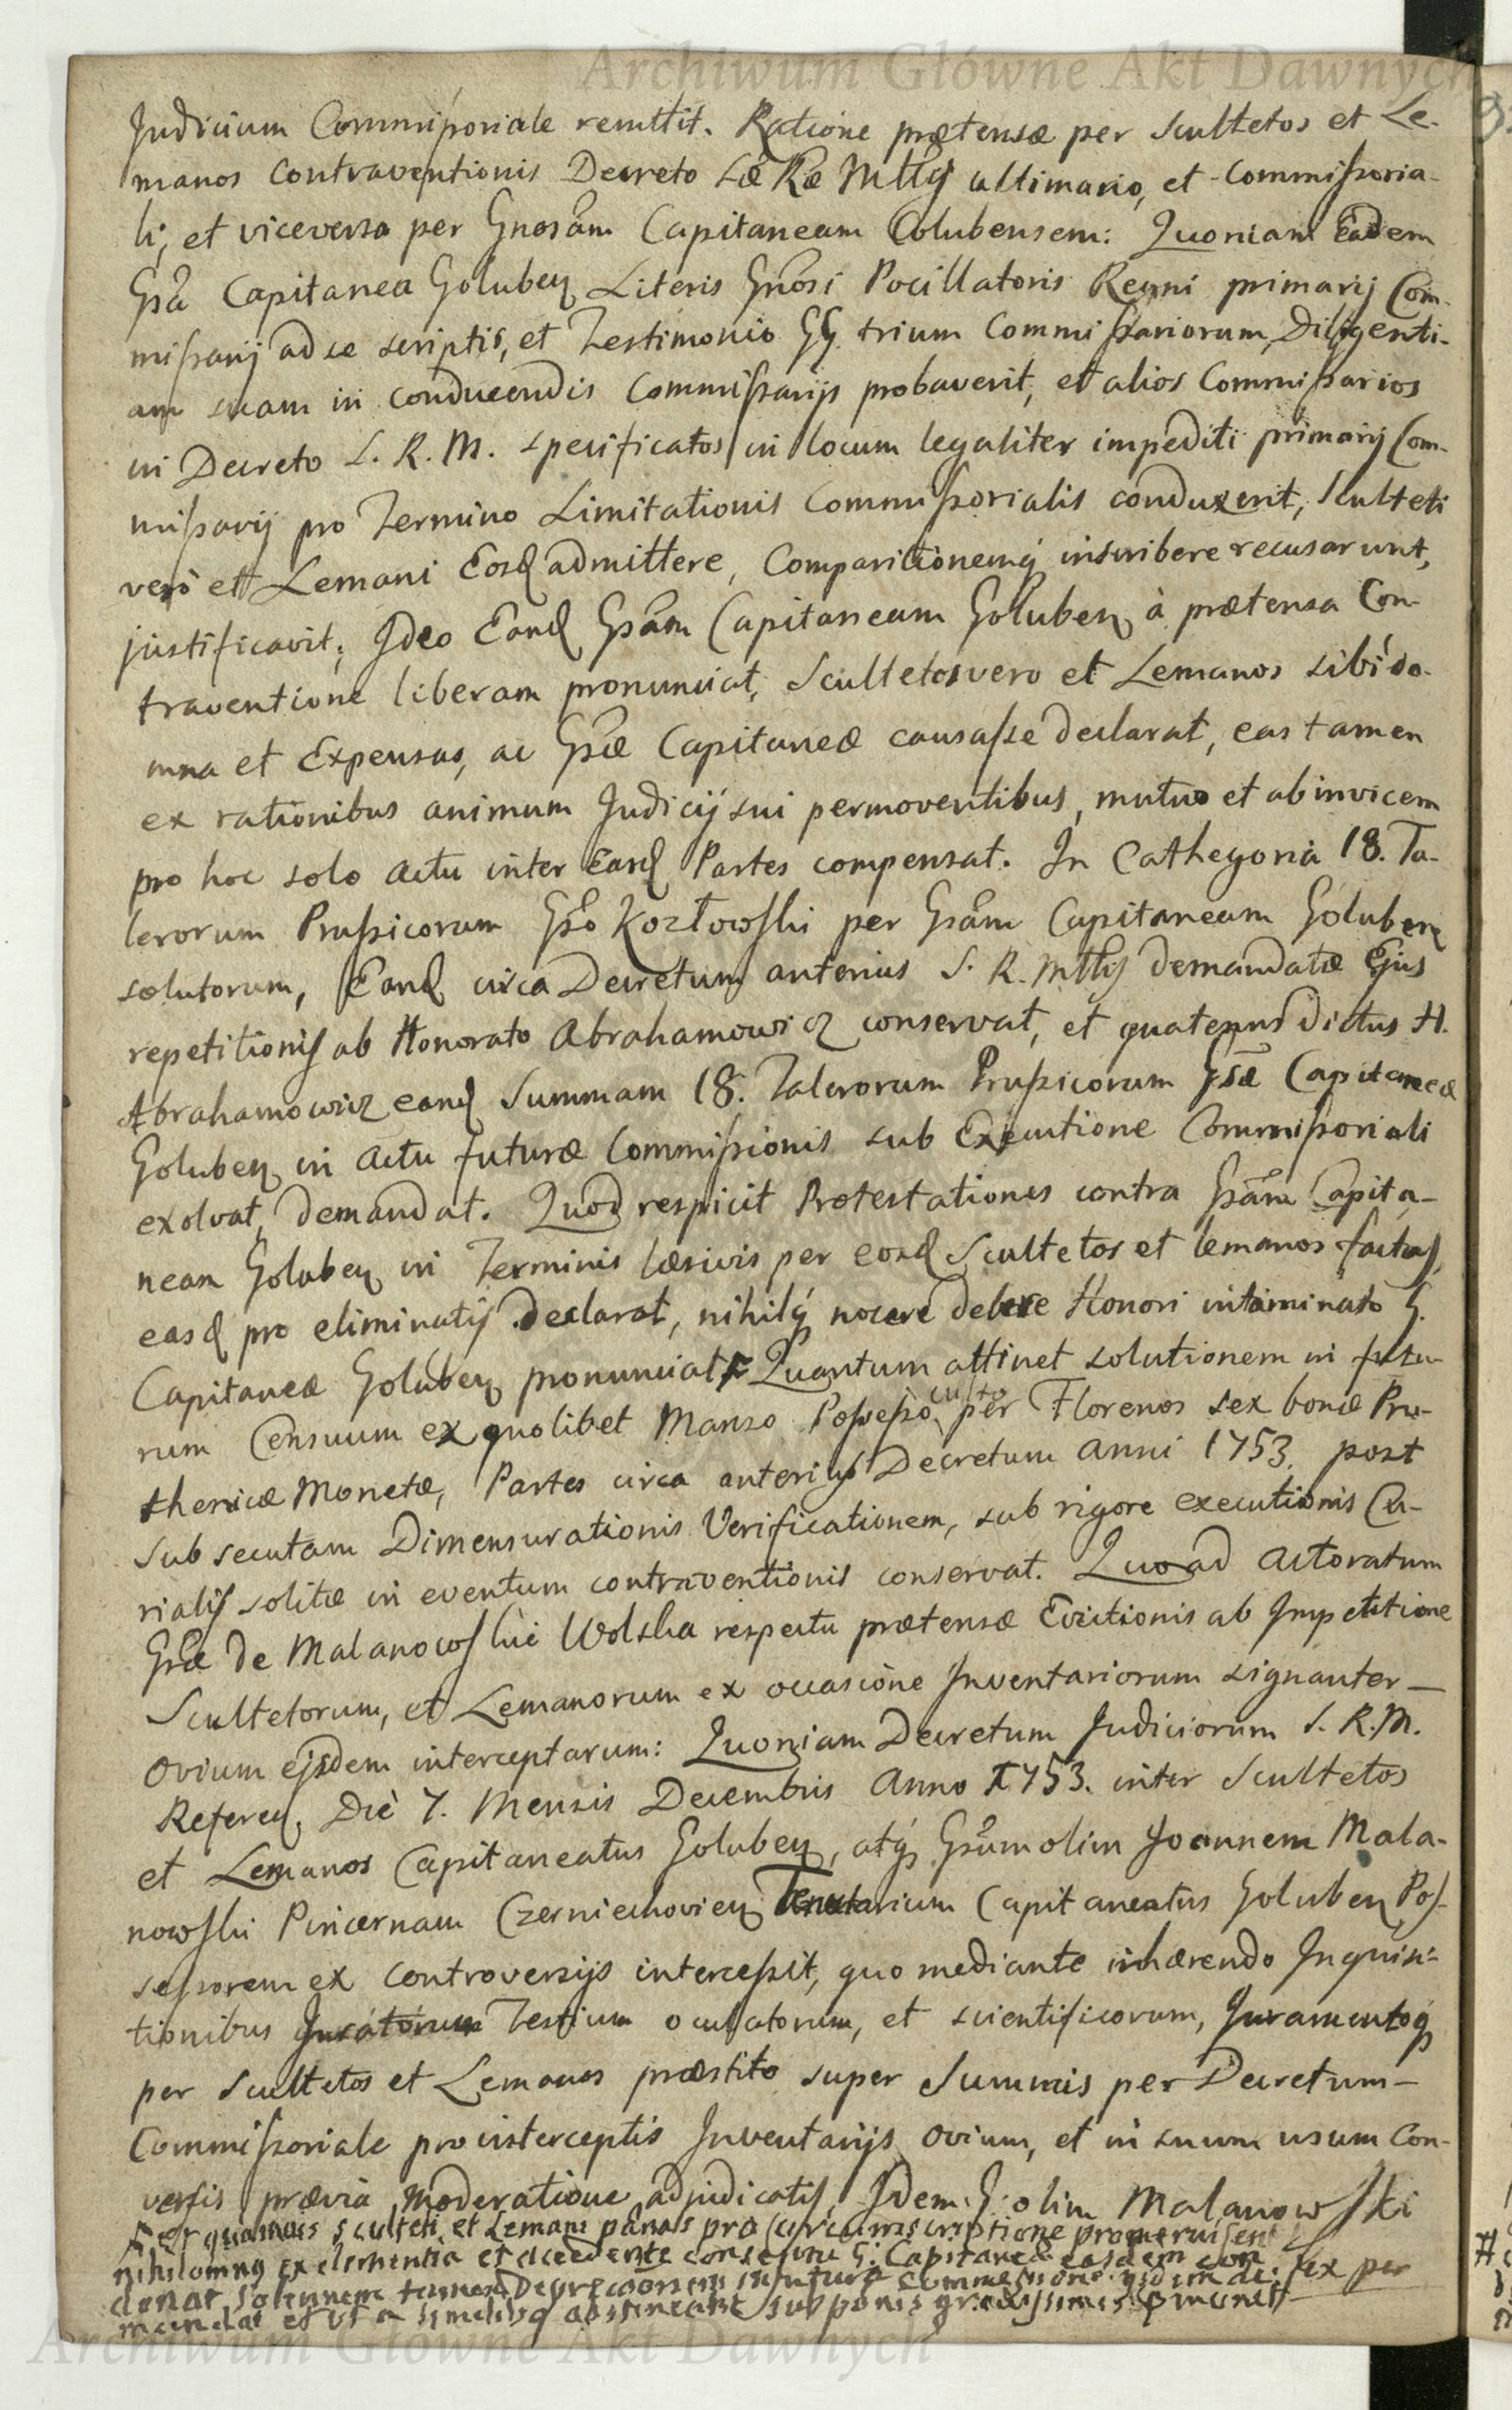 Archiwum Główne Akt Dawnych
Judicium Commissoriale remittit. Ratione prætensæ per Scultetos et Le-
manos Contraventionis Decreto Sæ Ræ Mttis ultimario, et Commissoria-
li, et viceversa per Gnosam Capitaneam Golubensem: Quoniam Eadem
Gsa Capitanea Goluben Literis Gnosi Pocillatoris Regni primarij Com-
missarij ad se scriptis, et Testimonio GG trium Commissariorum, Diligenti-
am suam in conducendis Commissarijs probaverit, et alios Commissarios
in Decreto S. R. M. specificatos in locum legaliter impediti primarij Com-
missarij pro Termino Limitationis Commissorialis conduxerit, Sculteti
verò et Lemani Eosd admittere, Comparitionemq́ inscribere recusarunt,
justificavit; Ideo Eand Gsam Capitaneam Goluben à prætensa Con-
traventione liberam pronunciat, Scultetos vero et Lemanos sibi da-
mna et Expensas, ac Gsæ Capitaneæ causasse declarat, eas tamen
ex rationibus animum Judicij sui permoventibus, mutuo et ab invicem
pro hoc solo actu inter Easd Partes compensat. In Cathegoria 18. Ta-
lerorum Prussicorum Gso Kozłowski per Gsam Capitaneam Goluben
solutorum, Eand circa Decretum anterius S. R. Mttis demandatæ Ejus
repetitionis ab Honorato Abrahamowicz conservat, et quatenus dictus H.
Abrahamowicz eand Summam 18. Talerorum Prussicorum Gsæ Capitaneæ
Goluben in actu futuræ Commissionis sub Executione Commissoriali
exolvat, demandat. Quod respicit Protestationes contra Gsam Capita-
neam Goluben in Terminis læsivis per eosd Scultetos et Lemanos factas,
easd pro eliminatis declarat, nihilq́ nocere debere Honori intaminato G.
Capitaneæ Goluben pronunciat. Quantum attinet solutionem in futu-
rum Censuum ex quolibet Manso Possesso, culto per Florenos sex bonæ Pru-
thenicæ Monetæ, Partes circa anterius Decretum anni 1753. post
Subsecutam Dimensurationis Verificationem, sub rigore executionis Cu-
rialis solitæ in eventum contraventionis conservat. Quoad Actoratum
Gsæ de Malanowskie Wolska respectu prætensæ Evictionis ab Impetitione
Scultetorum, et Lemanorum ex occasione Inventariorum signanter
Ovium ejsdem interceptarum: Quoniam Decretum Judiciorum S. R. M.
Referen, Die 7. Mensis Decembris Anno 1753. inter Scultetos
et Lemanos Capitaneatus Goluben, atq́ Gsum olim Joannem Mala-
nowski Pincernam Czerniechovien Tenutarium Capitaneatus Goluben Pos-
sessorem ex controversijs intercessit, quo mediante inhærendo Inquisi-
tionibus Juratorum Testium oculatorum, et scientificorum, Juramentoq
per Scultetos et Lemanos præstito super Summis per Decretum
Commissoriale pro interceptis Inventarijs Ovium, et in suum usum Con-
versis prævia moderatione adjudicatis, Idem G. olim Malanowski
Et quamvis Sculteti et Lemani pænas pro circumscriptione promeruissent
nihilominq ex clementia et accedente consensu G: Capitaneæ easdem con
donat solennem tamen Deprecationem in futura Commissione ijsdem de- sex per
mandat et ut a similibq abstineant sub pænis gravissimis
Archiwum Główne Akt Dawnych